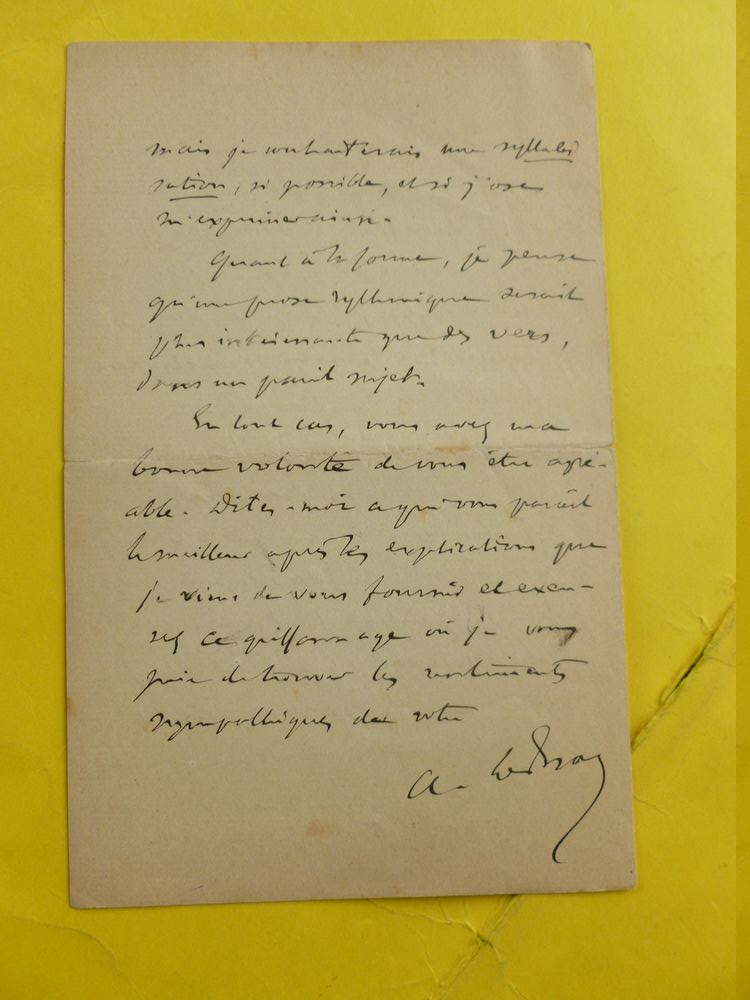 mais je souhaiterais une syllabi
sation, si possible, et si j'ose
m'exprimer ainsi.
Quant à la forme, je pense
qu'une prose rythmique serait
plus intéressante que des vers,
dans un pareil sujet.
En tout cas, vous avez ma
bonne volonté de vous être agré-
able. Dites-moi ce qui vous paraît
le meilleur après les explications que
je viens de vous fournir et excu-
sez ce griffonnage où je vous
prie de trouver les sentiments
sympathiques de votre
A.